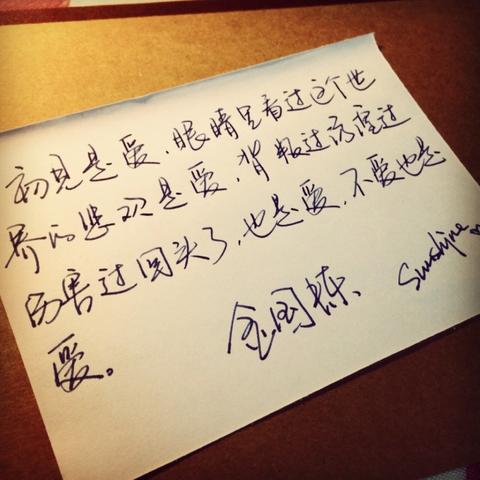 初见是爱，眼睛里看过这个世
界的悲观是爱，背叛过荒唐过
伤害过回头了，也是爱，不爱也是
爱。
金国栋、
Sunshine